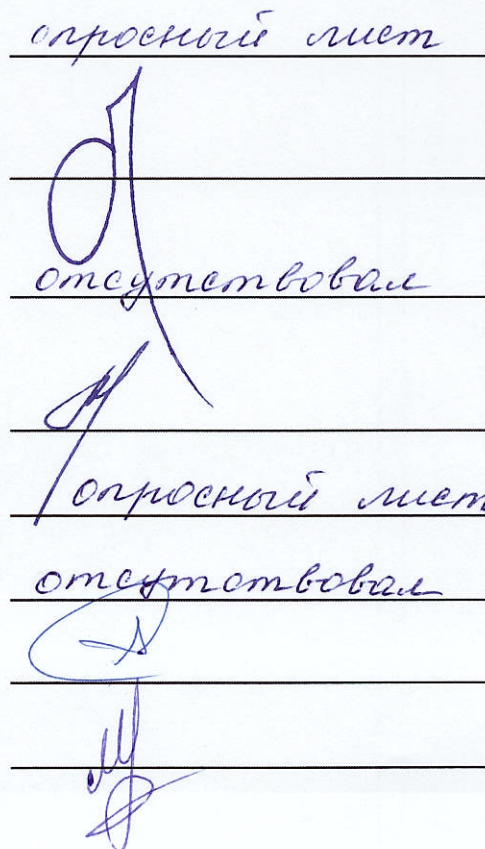 опросный лист
отсутствовал
опросный лист
отсутствовал